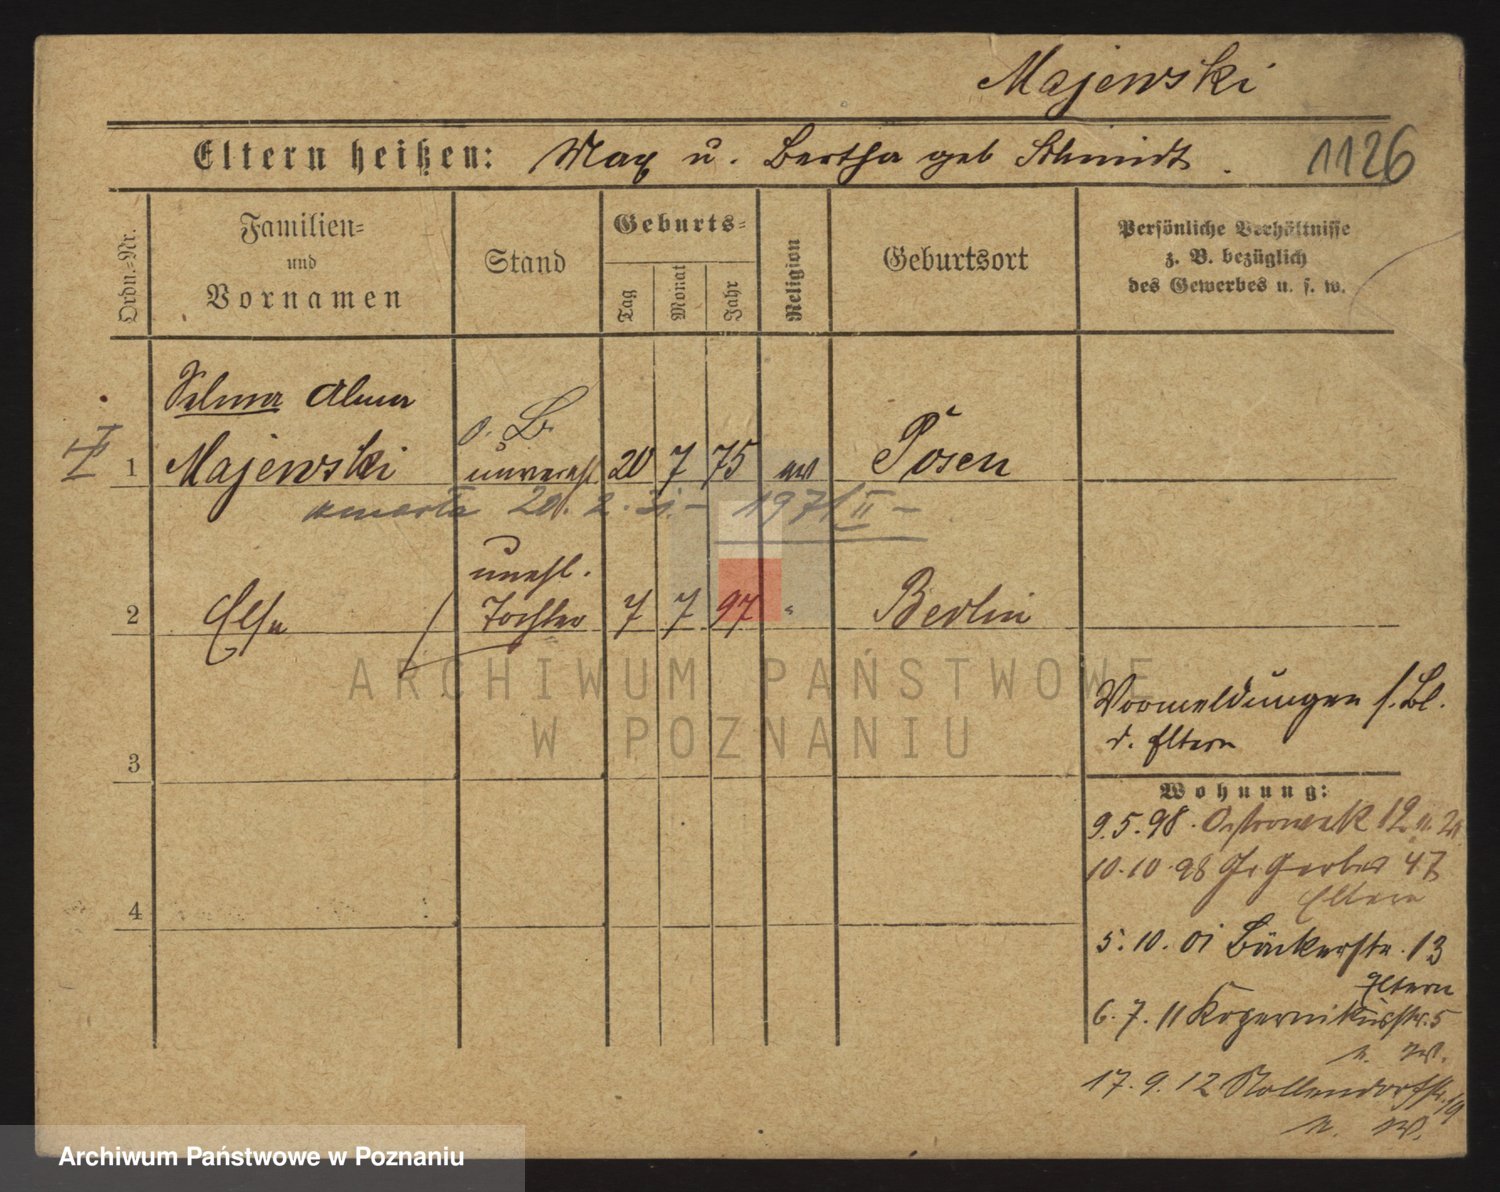 Majewski
Eltern heißen: Max u. Bertha geb Schmidt.
1126
Ordn.-Nr.
Familien-
und
Vornamen
Stand
Geburts-
Tag
Monat
Jahr
Religion
Geburtsort
Persönliche Verhältnisse
z. B. bezüglich
des Gewerbes u. s. w.
Selma Alma
o. B.
1 Majewski unverehl 20 7 75 ev Posen
umarła 20. 2. 31. – 197/II –
unehl.
2 Else Tochter 7 7 97 " Berlin
Vormeldungen s. Bl.
d. Eltern
3
Wohnung:
9.5.98. Ostrowek 19 u. 20
10.10.98 Gr Gerber 47
Eltern
4
5.10.01 Bäckerstr. 13
Eltern
6.7.11 Kopernikusstr. 5
u. W.
17.9.12 Nollendorfstr. 19
u. W.
ARCHIWUM PAŃSTWOWE
W POZNANIU
Archiwum Państwowe w Poznaniu